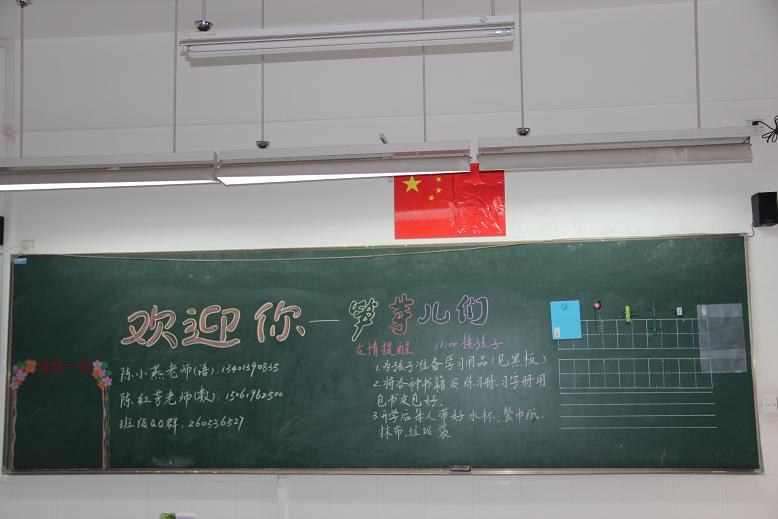 欢迎你—笋芽儿们
友情提醒 11:00接孩子
陈小燕老师(语): 13401390835
陈红芳老师(数): 15061962500
班级QQ群: 260556527
1.为孩子准备学习用品(见黑板)
2.将各种书籍及练习册、习字册用
包书皮包好.
3.开学后每人带好水杯、餐巾纸.
抹布、垃圾袋